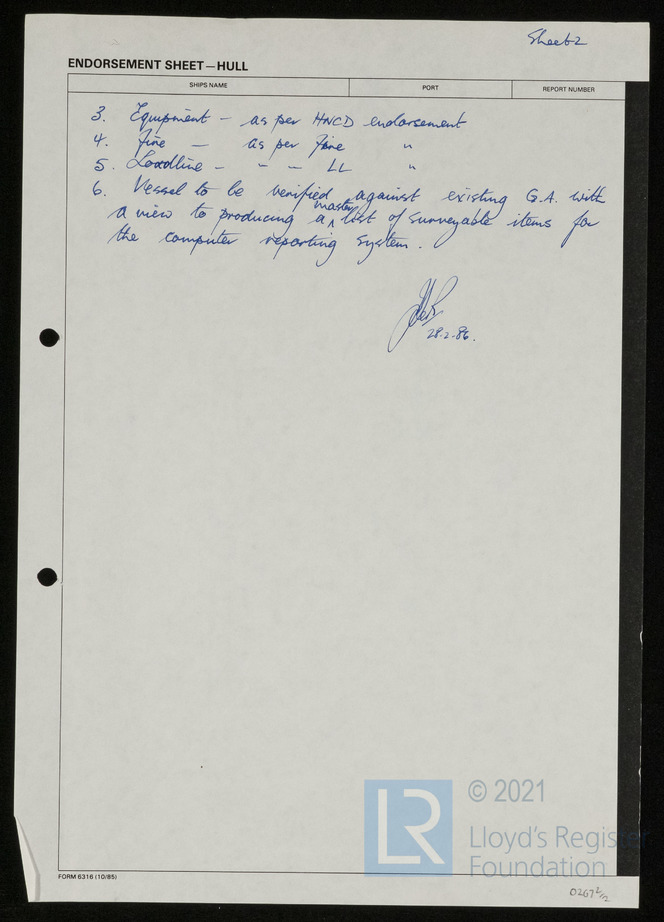 Sheet 2
ENDORSEMENT SHEET—HULL
SHIPS NAME PORT REPORT NUMBER
3. Equipment - as per HNCD endorsement
4. Fire — as per Fire "
5. Loadline - " - LL "
6. Vessel to be verified against existing G.A. with
a view to producing a master list of surveyable items for
the computer reporting system.
28-2-86.
© 2021
Lloyd's Register
Foundation
LR
FORM 6316 (10/85)
0267 2/2